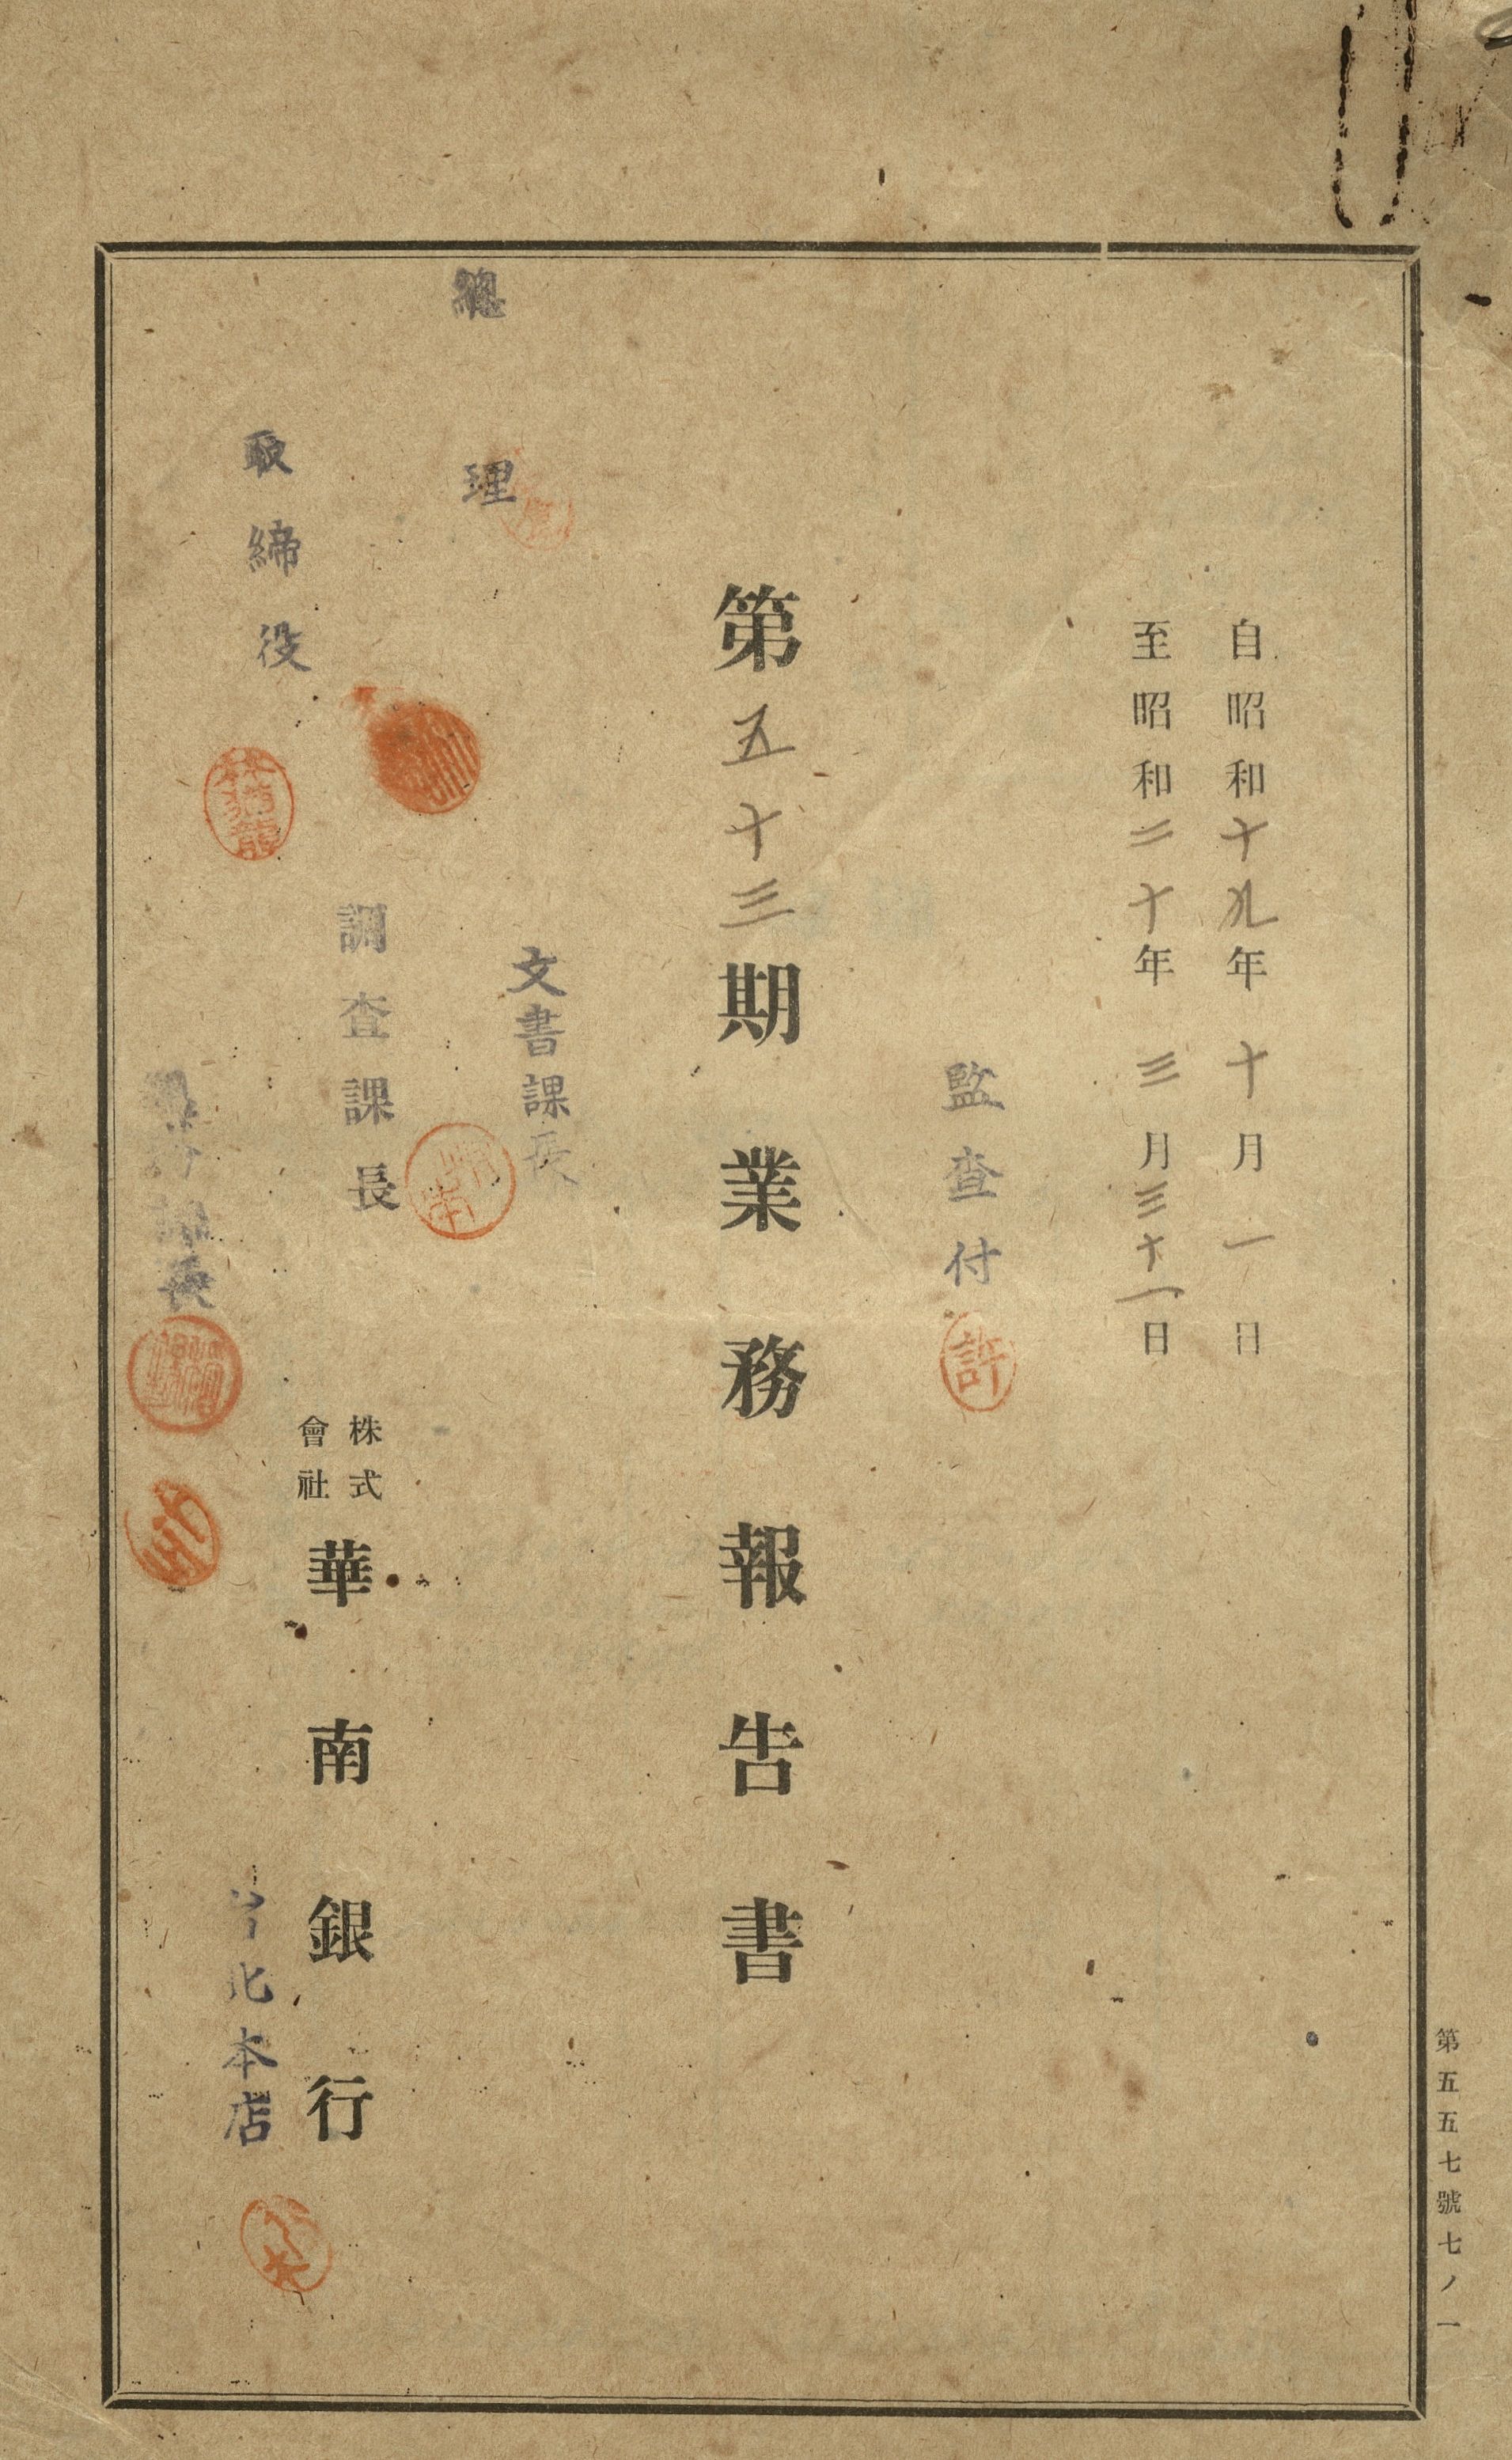 自昭和十九年十月一日
至昭和二十年三月三十一日
監査付
許
第五十三期業務報告書
文書課長
總理
調査課長
取締役
林猶龍
株式會社
華南銀行
台北本店
課長
第五五七號七ノ一